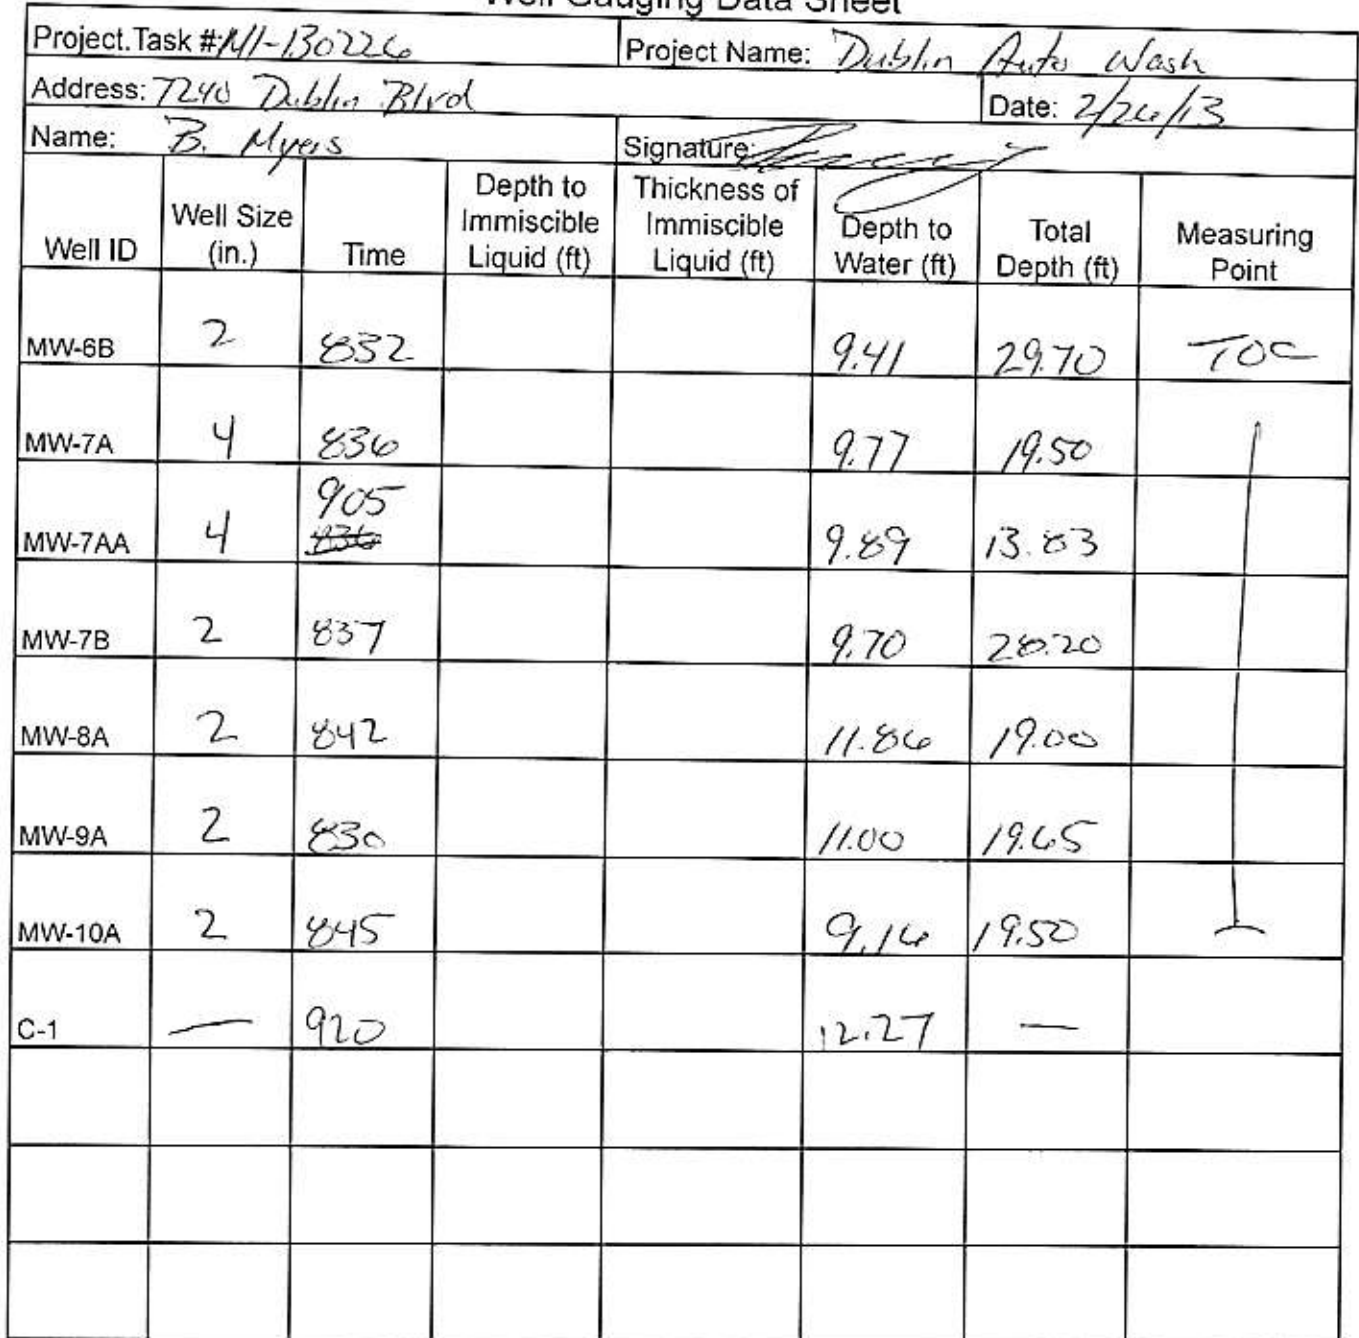 Well Gauging Data Sheet
Project.Task #: M1-130226 Project Name: Dublin Auto Wash
Address: 7240 Dublin Blvd Date: 2/26/13
Name: B. Myers Signature:
Well ID Well Size (in.) Time Depth to Immiscible Liquid (ft) Thickness of Immiscible Liquid (ft) Depth to Water (ft) Total Depth (ft) Measuring Point
MW-6B 2 832 9.41 29.70 TOC
MW-7A 4 836 9.77 19.50
905
MW-7AA 4 836 9.89 13.83
MW-7B 2 837 9.70 28.20
MW-8A 2 842 11.86 19.00
MW-9A 2 830 11.00 19.65
MW-10A 2 845 9.16 19.50
C-1 — 920 12.27 —